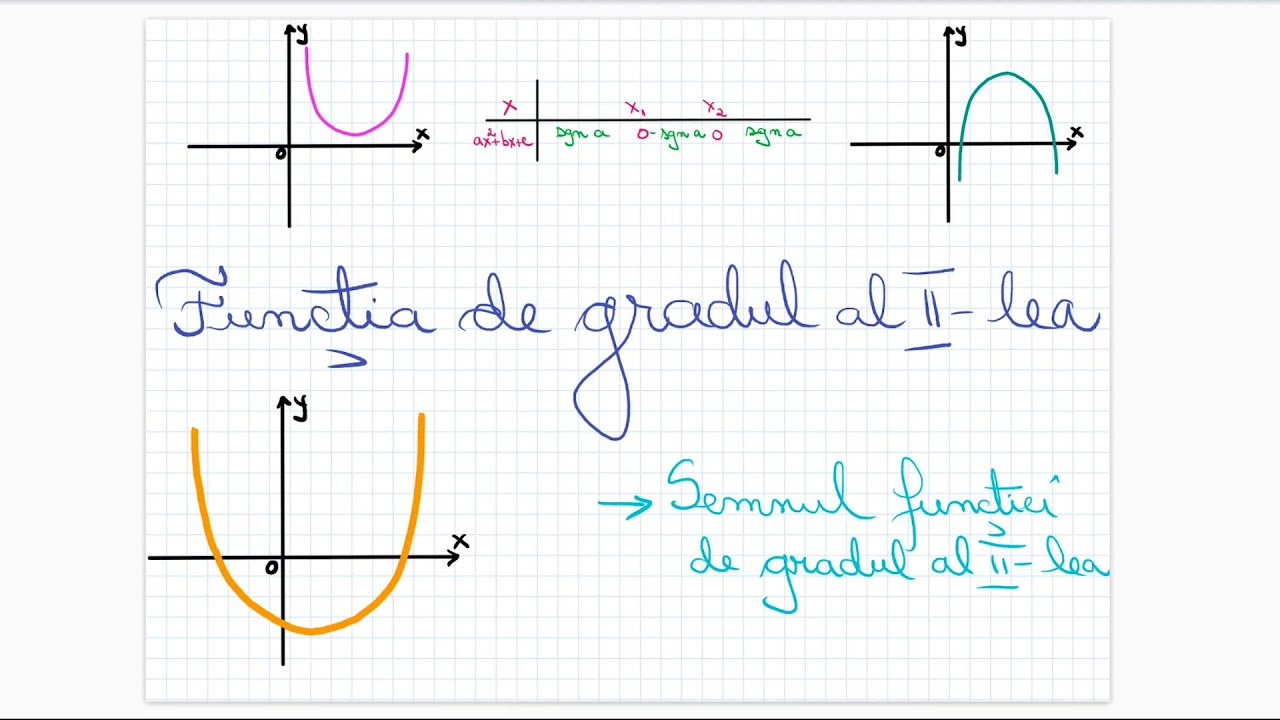 y
x
0
x x₁ x₂
ax²+bx+c sgn a 0 -sgn a 0 sgn a
y
x
0
Funcția de gradul al II-lea
y
x
0
→ Semnul funcției
de gradul al II-lea